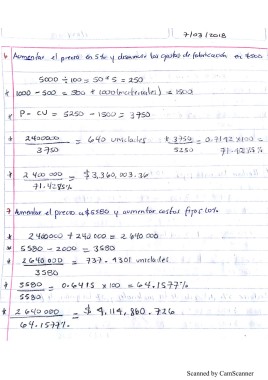 7/03/2018
6 Aumentar el precio en 5% y disminuir los costos de fabricación en $500
5000 ÷ 100 = 50 * 5 = 250
* 1000 - 500 = 500 + 1000 (materiales) = 1500
* P - CV = 5250 - 1500 = 3750
* 2400000 / 3750 = 640 unidades * 3750 / 5250 = 0.7142 x100 = 71.4285%
* 2 400 000 / 71.4285% = $3,360,003.36
7 Aumentar el precio a $5580 y aumentar costos fijos 10%
* 2400000 + 240 000 = 2 640 000
* 5580 - 2000 = 3580
* 2640,000 / 3580 = 737.4301 unidades
* 3580 / 5580 = 0.6415 x 100 = 64.1577%
* 2 640 000 / 64.1577% = $ 4,114,860.726
Scanned by CamScanner